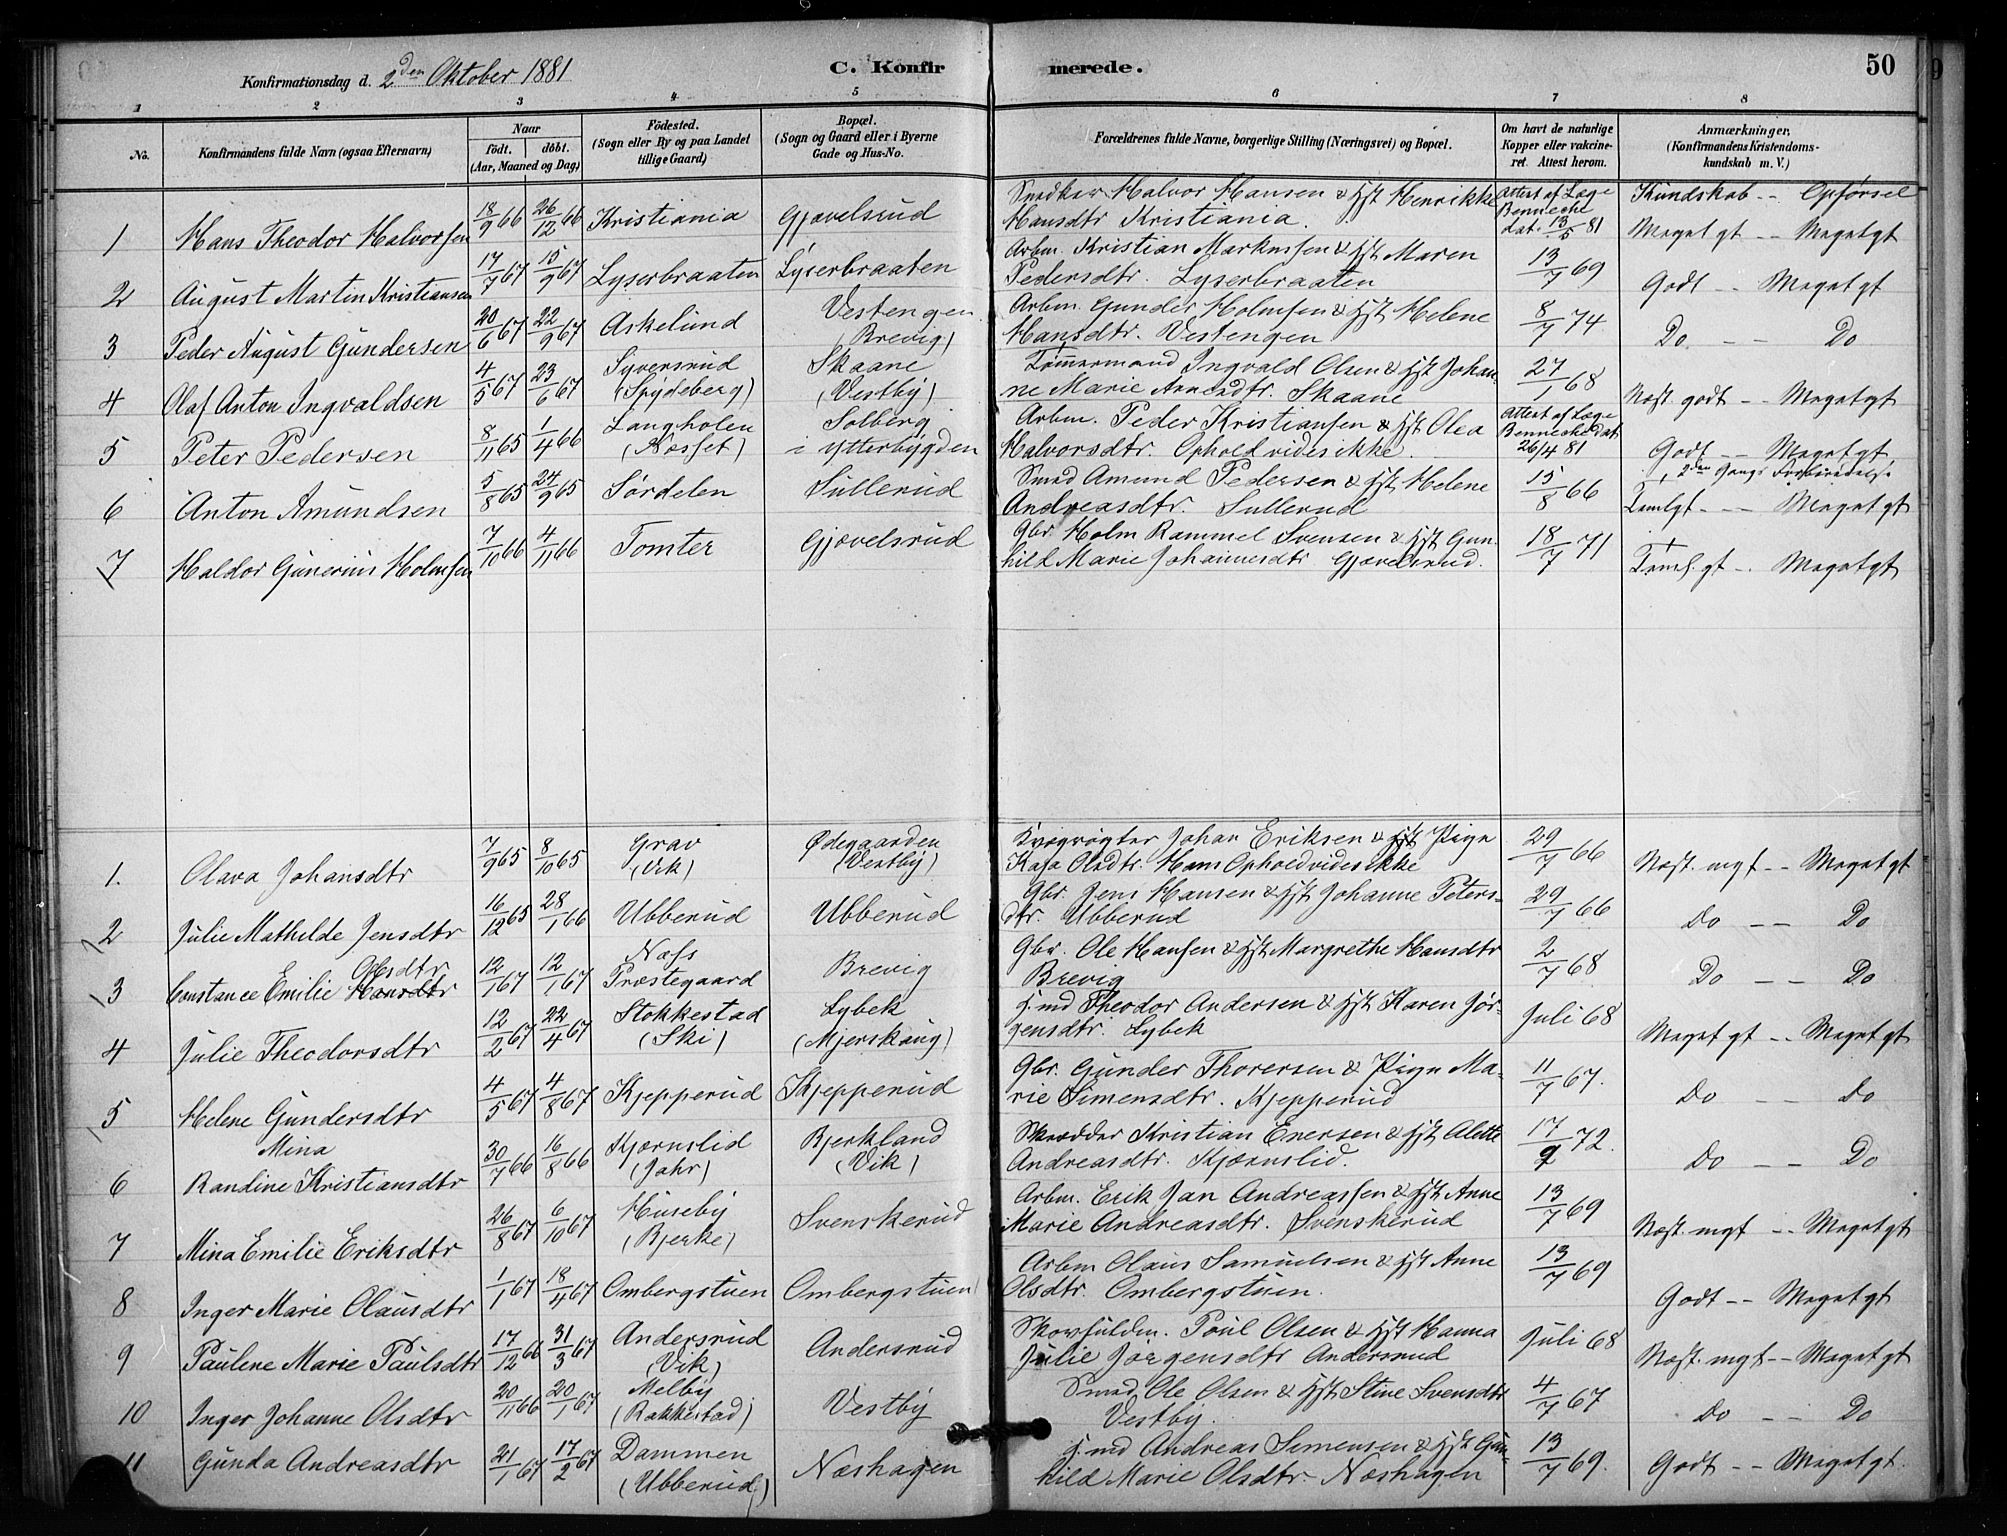 Konfirmationsdag d. 2den Oktober 1881
C. Konfirmerede.
50
1 2 3 4 5 6 7 8
No.
Konfirmandens fulde Navn (ogsaa Efternavn)
Naar
født. døbt.
(Aar, Maaned og Dag)
Fødested.
(Sogn eller By og paa Landet
tillige Gaard)
Bopæl.
(Sogn og Gaard eller i Byerne
Gade og Hus-No.
Forældrenes fulde Navne, borgerlige Stilling (Næringsvei) og Bopæl.
Om havt de naturlige
Kopper eller vakcineret. Attest herom.
Anmærkninger,
(Konfirmandens Kristendomskundskab m. V.)
Kundskab -- Opførsel
1 Hans Theodor Halvorsen 18/9 66 26/12 66 Kristiania Gjævelsrud
Snedker Halvor Hansen & Hst Henrikke
Hansdtr Kristiania.
Attest af Læge
Bennecke
dat. 13/5 81
Meget gt -- Meget gt
2 August Martin Kristiansen 17/7 67 15/9 67 Lyserbraaten Lyserbraaten
Arbm. Kristian Markussen & Hst Maren
Pedersdtr Lyserbraaten
13/7 69 Godt -- Meget gt
3 Peder August Gundersen 20/6 67 22/9 67 Askelund Vestengen
(Brevig)
Arbm. Gunder Holmsen & Hst Helene
Hansdtr. Vestengen
8/7 74 Do -- Do
4 Olaf Anton Ingvaldsen 4/5 67 23/6 67 Syversrud
(Spydeberg)
Skaane
(Vestby)
Tømmermand Ingvald Olsen & Hst Johanne Marie Arnesdtr. Skaane
27/1 68 Næst godt -- Meget gt
5 Peter Pedersen 8/11 65 1/4 66 Langholen
(Næsset)
Solberg
i Ytterbygden
Arbm. Peder Kristiansen & Hst Olea
Halvorsdtr. Ophold vides ikke.
Attest af Læge
Bennecke dat
26/4 81
Godt -- Meget gt,
2den Gangs Forberedelse
6 Anton Amundsen 5/8 65 24/9 65 Sørdelen Sullerud
Smed Amund Pedersen & Hst Helene
Andreasdtr. Sullerud
15/8 66 Temlgt -- Meget gt
7 Haldor Gunerius Holmsen 7/10 66 4/11 66 Tomter Gjævelsrud
Gbr. Holm Rammel Svensen & Hst Gunhild Marie Johannesdtr Gjævelsrud.
18/7 71 Teml. gt -- Meget gt
1. Olava Johansdtr 7/9 65 8/10 65 Grav
(Vik)
Ødegaarden
(Vestby)
Kvægrøgter Johan Eriksen & Pige
Kaja Olsdtr. Hans Ophold vides ikke
29/7 66 Næst. mgt -- Meget gt
2 Julie Mathilde Jensdtr 16/12 65 28/1 66 Ubberud Ubberud
Gbr. Jens Hansen & Hst Johanne Petersdtr. Ubberud
29/7 66 Do -- Do
3 Constance Emilie Olsdtr 12/1 67 12/1 67 Næss
Præstegaard
Brevig
Gbr. Ole Hansen & Hst Margrethe Hansdtr
Brevig
2/7 68 Do -- Do
4 Julie Theodorsdtr 12/2 67 22/4 67 Stokkestad
(Ski)
Lybek
(Mjerskaug)
J.md Theodor Andersen & Hst Karen Jørgensdtr. Lybek
Juli 68 Meget gt -- Meget gt
5 Helene Gundersdtr 4/5 67 4/8 67 Kjepperud Kjepperud
Gbr. Gunder Thorersen & Pige Marie Simensdtr. Kjepperud
11/7 67. Do -- Do
6 Mina
Randine Kristiansdtr 30/7 66 16/8 66 Kjærnslid
(Jahr)
Bjerkland
(Vik)
Skrædder Kristian Enersen & Hst Alette
Andreasdtr. Kjærnslid.
17/9 72. Do -- Do
7 Mina Emilie Eriksdtr 26/8 67 6/10 67 Huseby
(Bjerke)
Svenskerud
Arbm. Erik Jan Andreassen & Hst Anne
Marie Andreasdtr. Svenskerud
13/7 69 Næst. mgt -- Meget gt
8 Inger Marie Olausdtr 1/1 67 18/4 67 Ombergstuen Ombergstuen
Arbm Olaus Samuelsen & Hst Anne
Olsdtr. Ombergstuen.
13/7 69 Godt -- Meget gt
9 Paulene Marie Paulsdtr 17/12 66 31/3 67 Andersrud
(Vik)
Andersrud
Skovfuldm. Poul Olsen & Hst Hanna
Julie Jørgensdtr Andersrud
Juli 68 Næst. mgt -- Meget gt
10 Inger Johanne Olsdtr 20/11 66 20/1 67 Melby
(Rakkestad)
Vestby
Smed Ole Olsen & Hst Stine Svensdtr
Vestby.
4/7 67 Do -- Do
11 Gunda Andreasdtr 21/1 67 17/2 67 Dammen
(Ubberud)
Næshagen
J.md Andreas Simensen & Hst Gunhild Marie Olsdtr. Næshagen
13/7 69. Godt -- Meget gt.